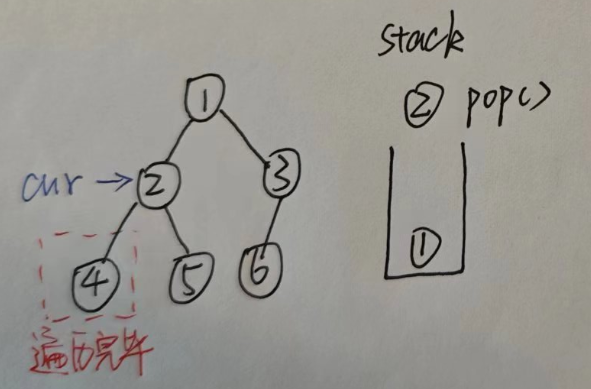 stack
② pop()
①
cur → ② ③
④ ⑤ ⑥
①
遍历完毕